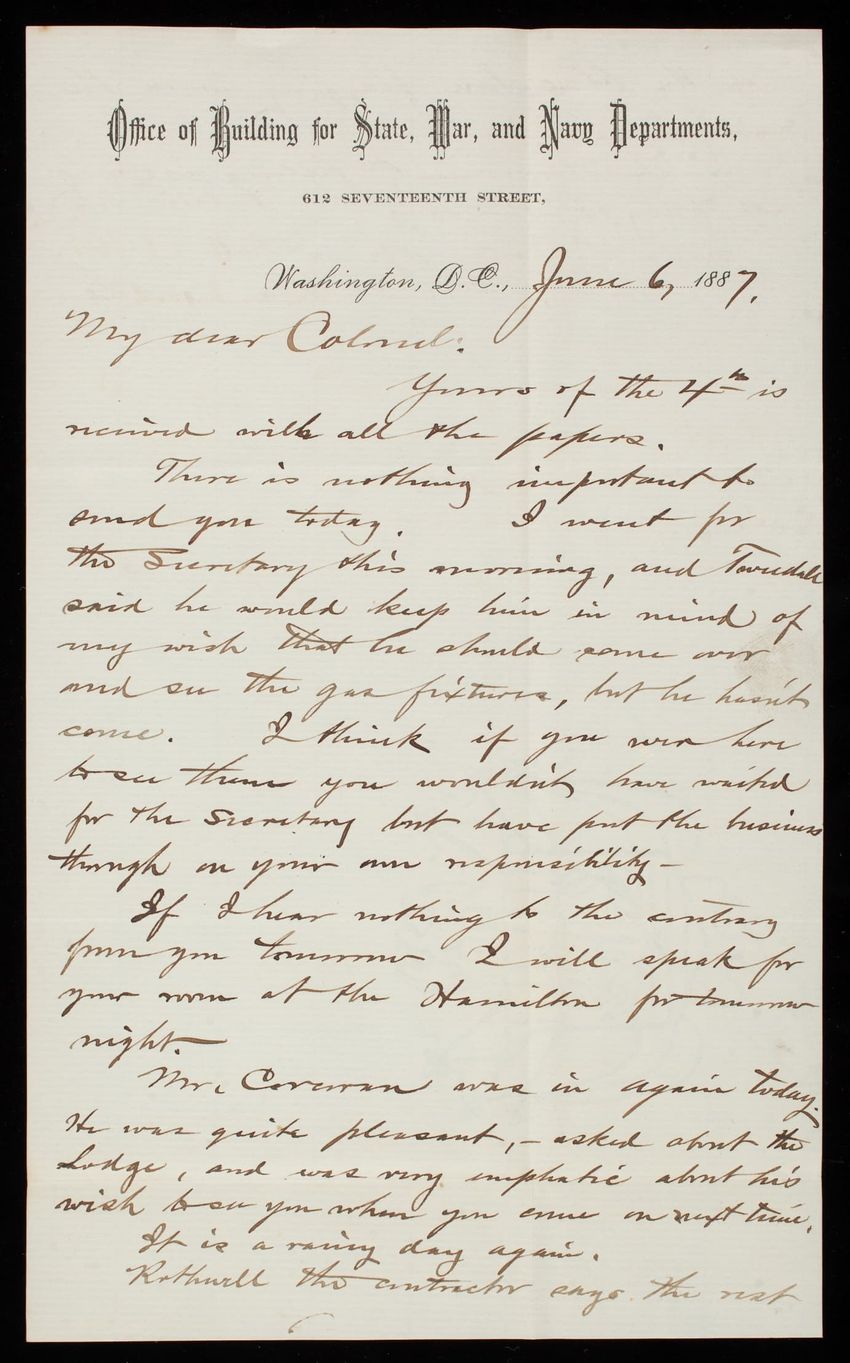 Office of Building for State, War, and Navy Departments,
612 SEVENTEENTH STREET,
Washington, D.C., June 6, 1887.
My dear Colonel:
Yours of the 4th is
received with all the papers.
There is nothing important to
send you today. I went for
the Secretary this morning, and Tweedale
said he would keep him in mind of
my wish that he should come over
and see the gas fixtures, but he hasn't
come. I think if you were here
to see them you wouldn't have waited
for the Secretary but have put the business
through on your own responsibility—
If I hear nothing to the contrary
from you tomorrow I will speak for
your room at the Hamilton for tomorrow
night.—
Mr. Corcoran was in again today.
He was quite pleasant,— asked about the
Lodge, and was very emphatic about his
wish to see you when you come on next time.
It is a rainy day again.
Rothwell the contractor says the rest